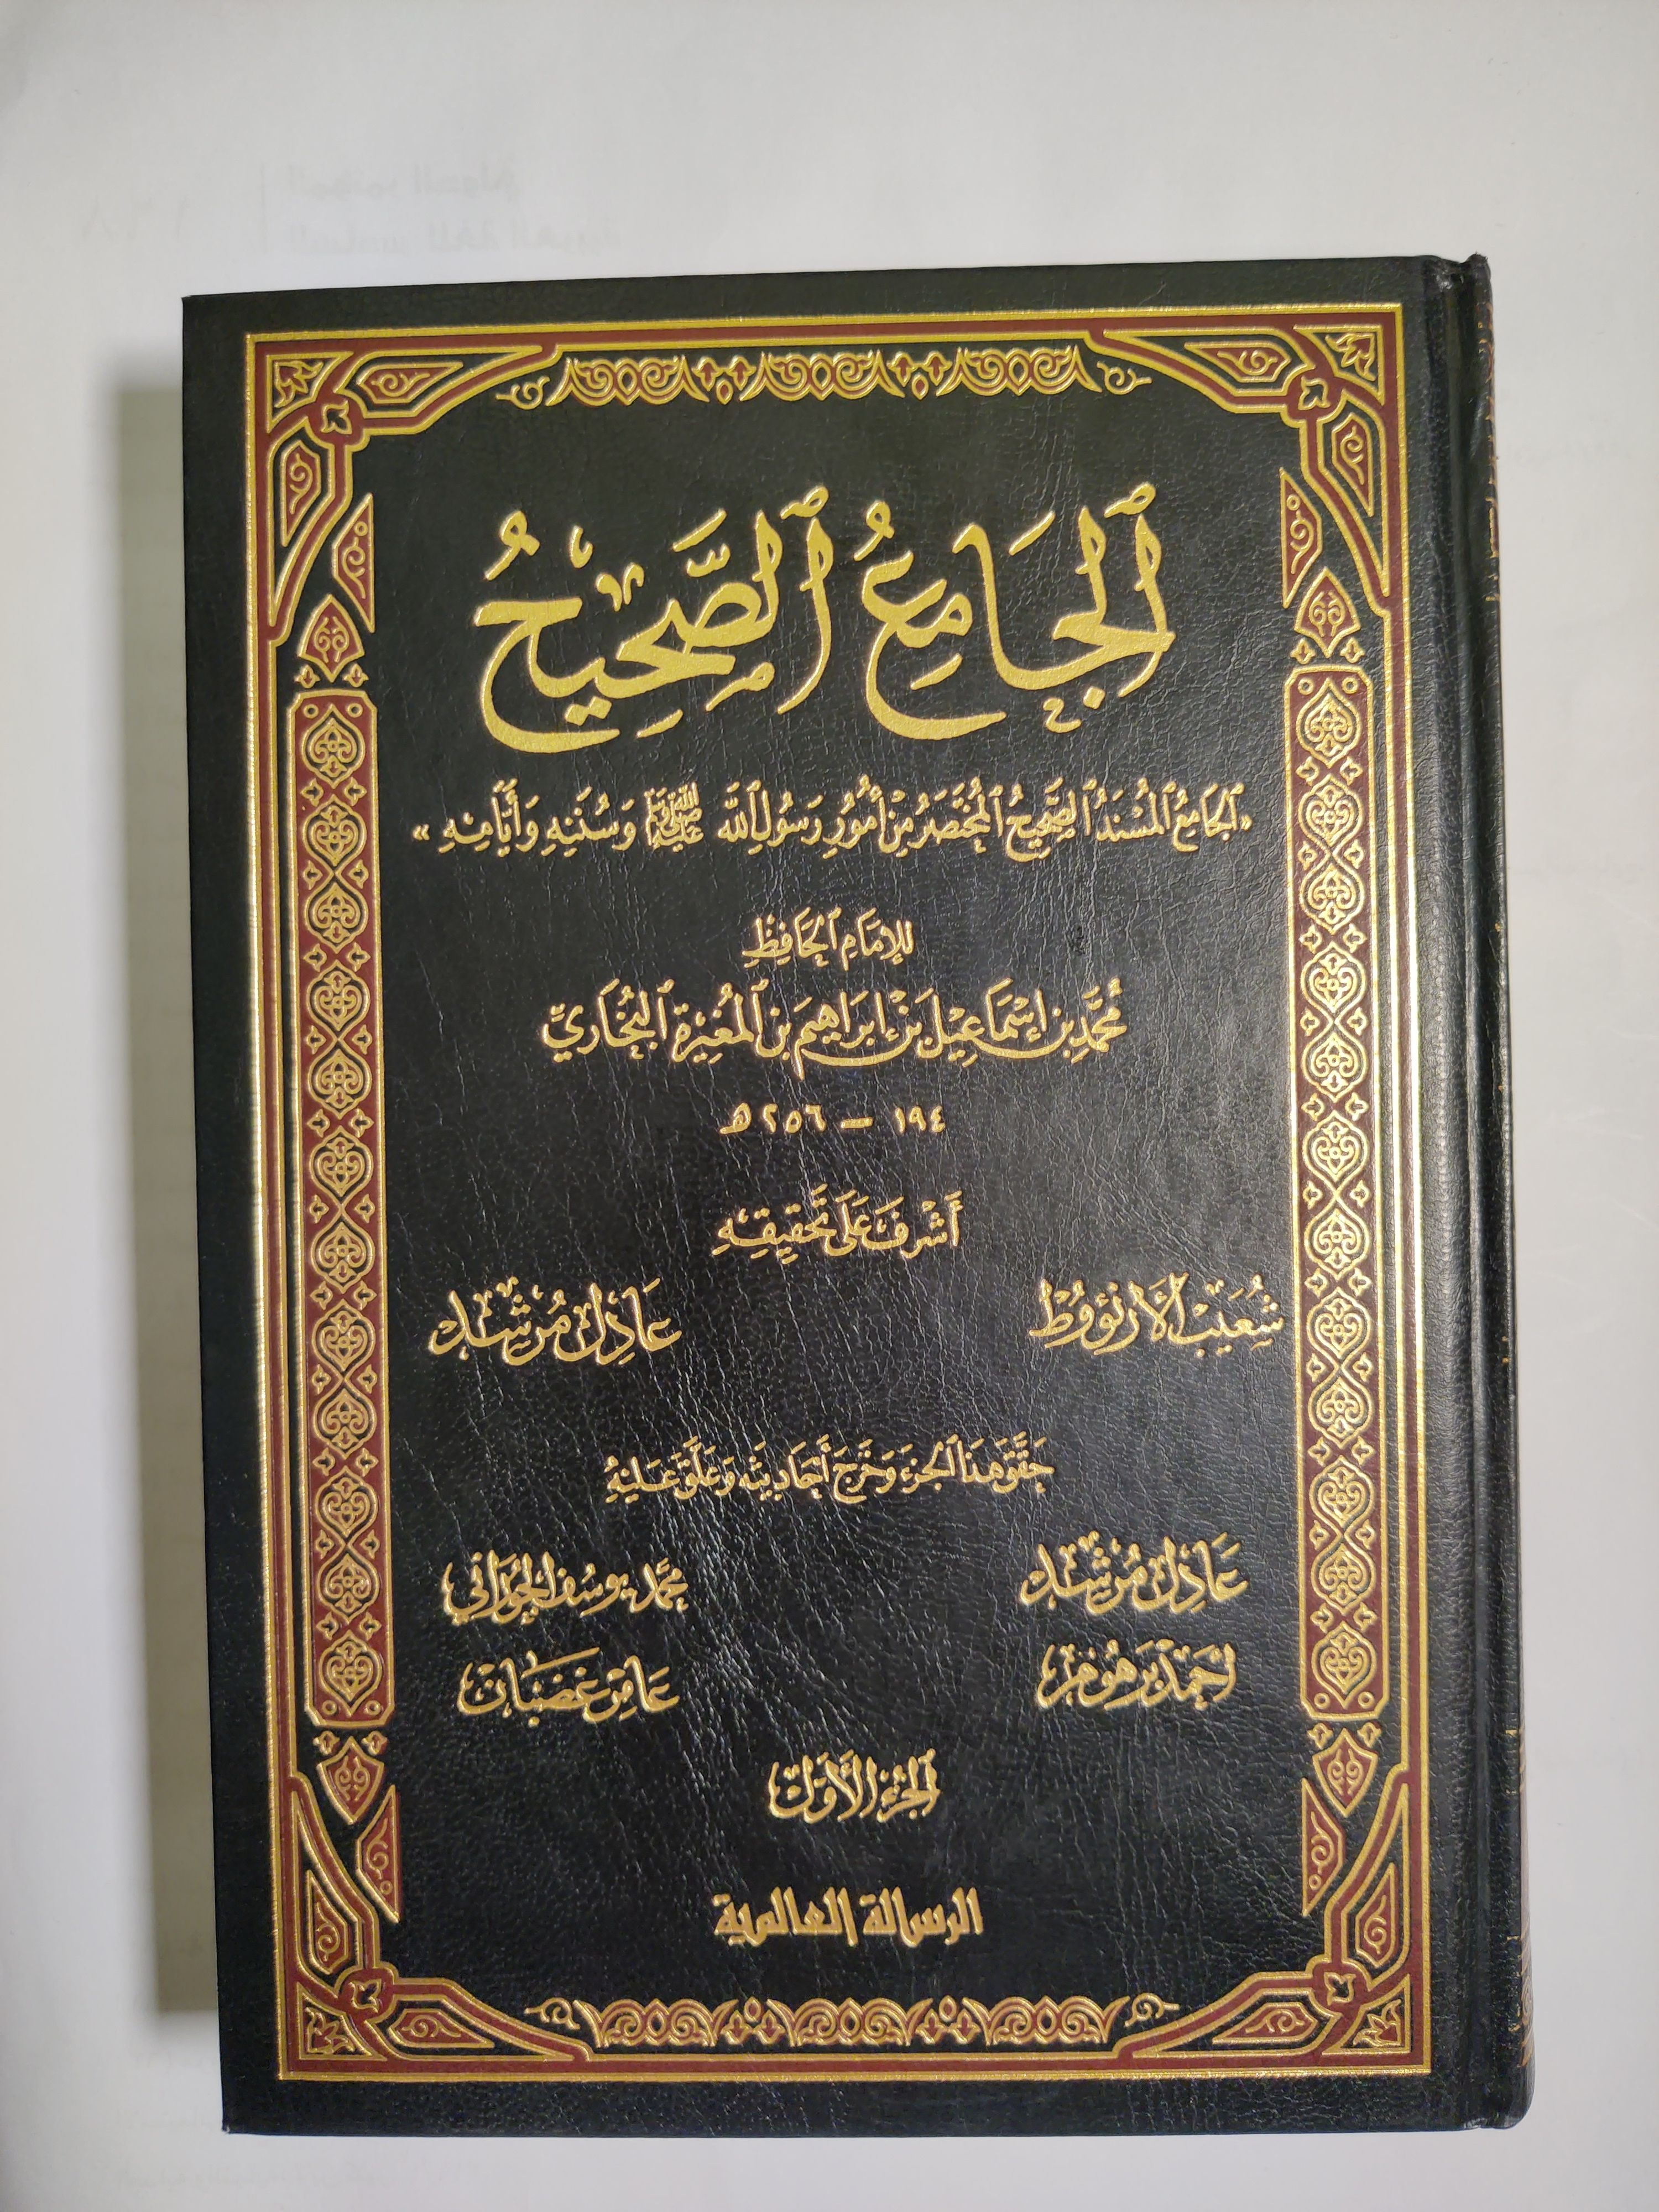 الجَامِعُ الصَّحِيحُ
«الجَامِعُ المُسْنَدُ الصَّحِيحُ المُخْتَصَرُ مِنْ أُمُورِ رَسُولِ اللَّهِ ﷺ وَسُنَنِهِ وَأَيَّامِهِ»
للإِمَامِ الحَافِظِ
مُحَمَّدِ بْنِ إِسْمَاعِيلَ بْنِ إِبْرَاهِيمَ بْنِ المُغِيرَةِ البُخَارِيِّ
١٩٤ – ٢٥٦ ه
أَشْرَفَ عَلَى تَحْقِيقِهِ
شُعَيْبُ الأَرْنَؤُوط عَادِل مُرْشِد
حَقَّقَ هَذَا الجُزْءَ وَخَرَّجَ أَحَادِيثَه وَعَلَّقَ عَلَيْهِ
عَادِل مُرْشِد محمَّد يوسُف الجَوَراني
أحمَد برهُوم عَامِر غَضْبَان
الجُزْءُ الأَوَّل
الرسالة العالمية